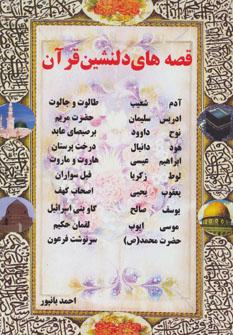 قصه های دلنشین قرآن
آدم شعیب طالوت و جالوت
ادریس سلیمان حضرت مریم
نوح داوود برصیصای عابد
هود دانیال درخت پرستان
ابراهیم عیسی هاروت و ماروت
لوط زکریا فیل سواران
یعقوب یحیی اصحاب کهف
یوسف صالح گاو بنی اسرائیل
موسی ایوب لقمان حکیم
حضرت محمد(ص) سرنوشت فرعون
احمد پانپور